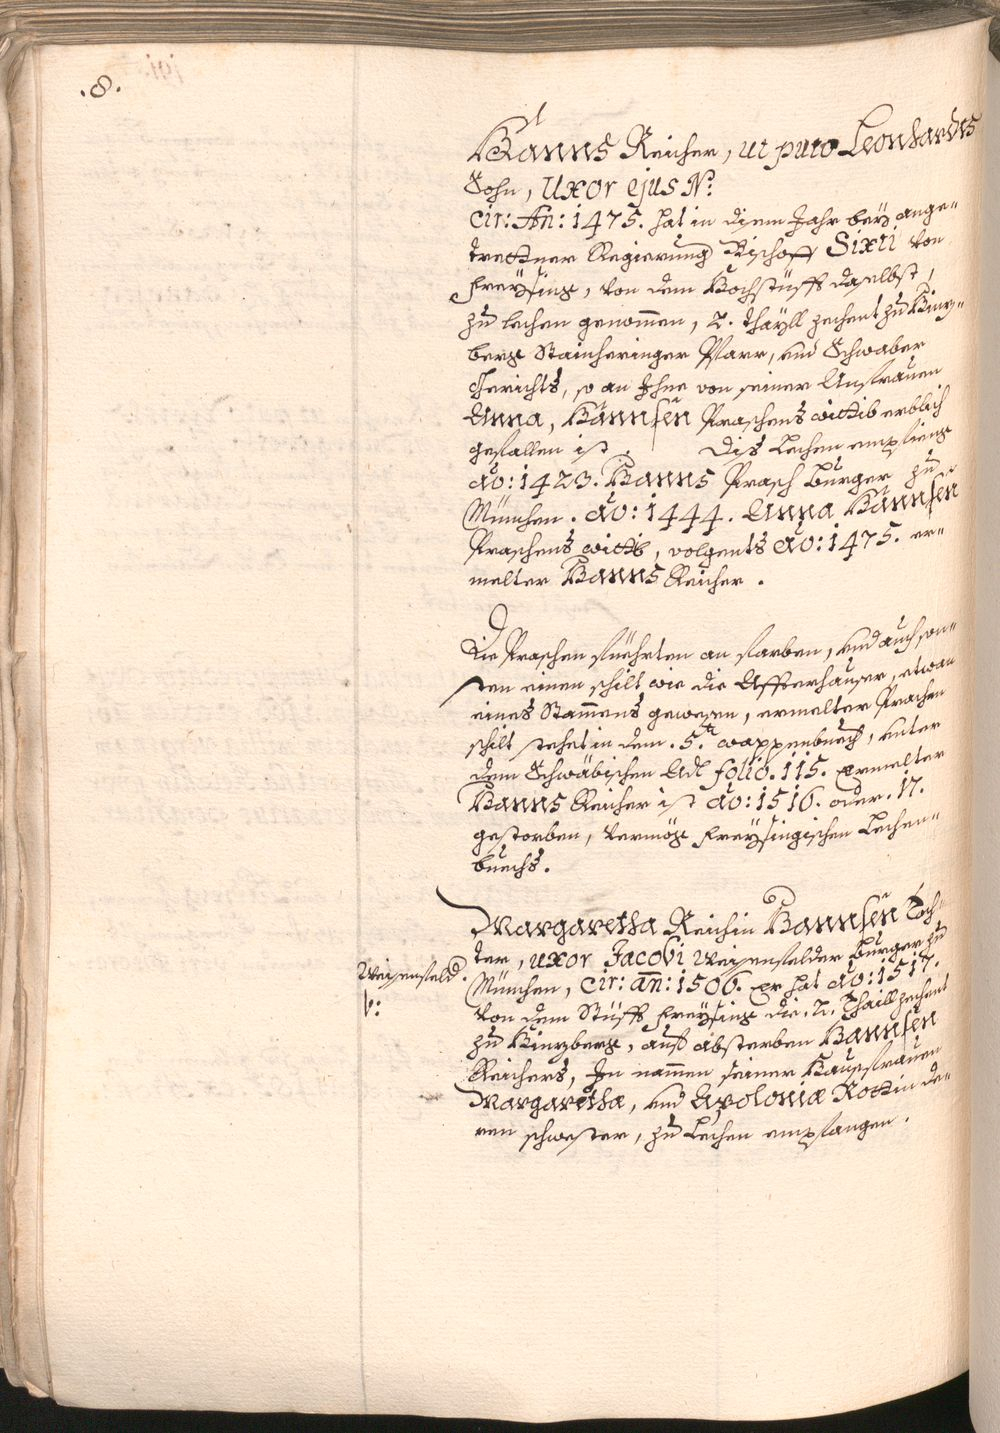 .8.
Hanns Reicher, ut puto Leonhardts
Sohn, Uxor ejus N:
Cir: An: 1475. hat in disem Jahr bey ange-
trettner Regierung Bischoff Sixti von
Freysing, von dem Hochstüfft daselbst,
zu Lechen genommen, 2. thayll zechent zu
berg Stainheringer Pfarr, und Schwaber
Gerichts, so an Ihne von seiner Anfrauen
Anna, Hännsen Praschens wittib erblich
gefallen ist. Dis Lechen empfieng
Ao: 1423. Hanns Prasch Burger zu
München. Ao: 1444. Anna Hännsen
Praschens wittib, volgents Ao: 1475. er-
melter Hanns Reicher.
Die Praschen fuehrten an farben, und auch son-
sten einen schilt wie die Affterhauser, etwan
eines Stammens gewesen, ermelter Praschen
schilt stehet in dem .5.t wappenbuech, unter
dem Schwäbischen Adl folio. 115. Ermelter
Hanns Reicher ist Ao: 1516. oder .17.
gestorben, vermög Freysingischen Lechen-
buechs.
Margaretha Reichin Hannsen Toch-
ter, uxor Jacobi Weissenfelder Burger zu
Weissenfeld.
V:
München, Cir: an: 1506. Er hat Ao: 1517.
von dem Stüfft Freysing die .2. Thaill zechent
zu, auf absterben Hannsen
Reichers, In nammen seiner Hausfrauen
Margaretha, und Apoloniæ Rottin de-
ren schwester, zu Lechen empfangen.